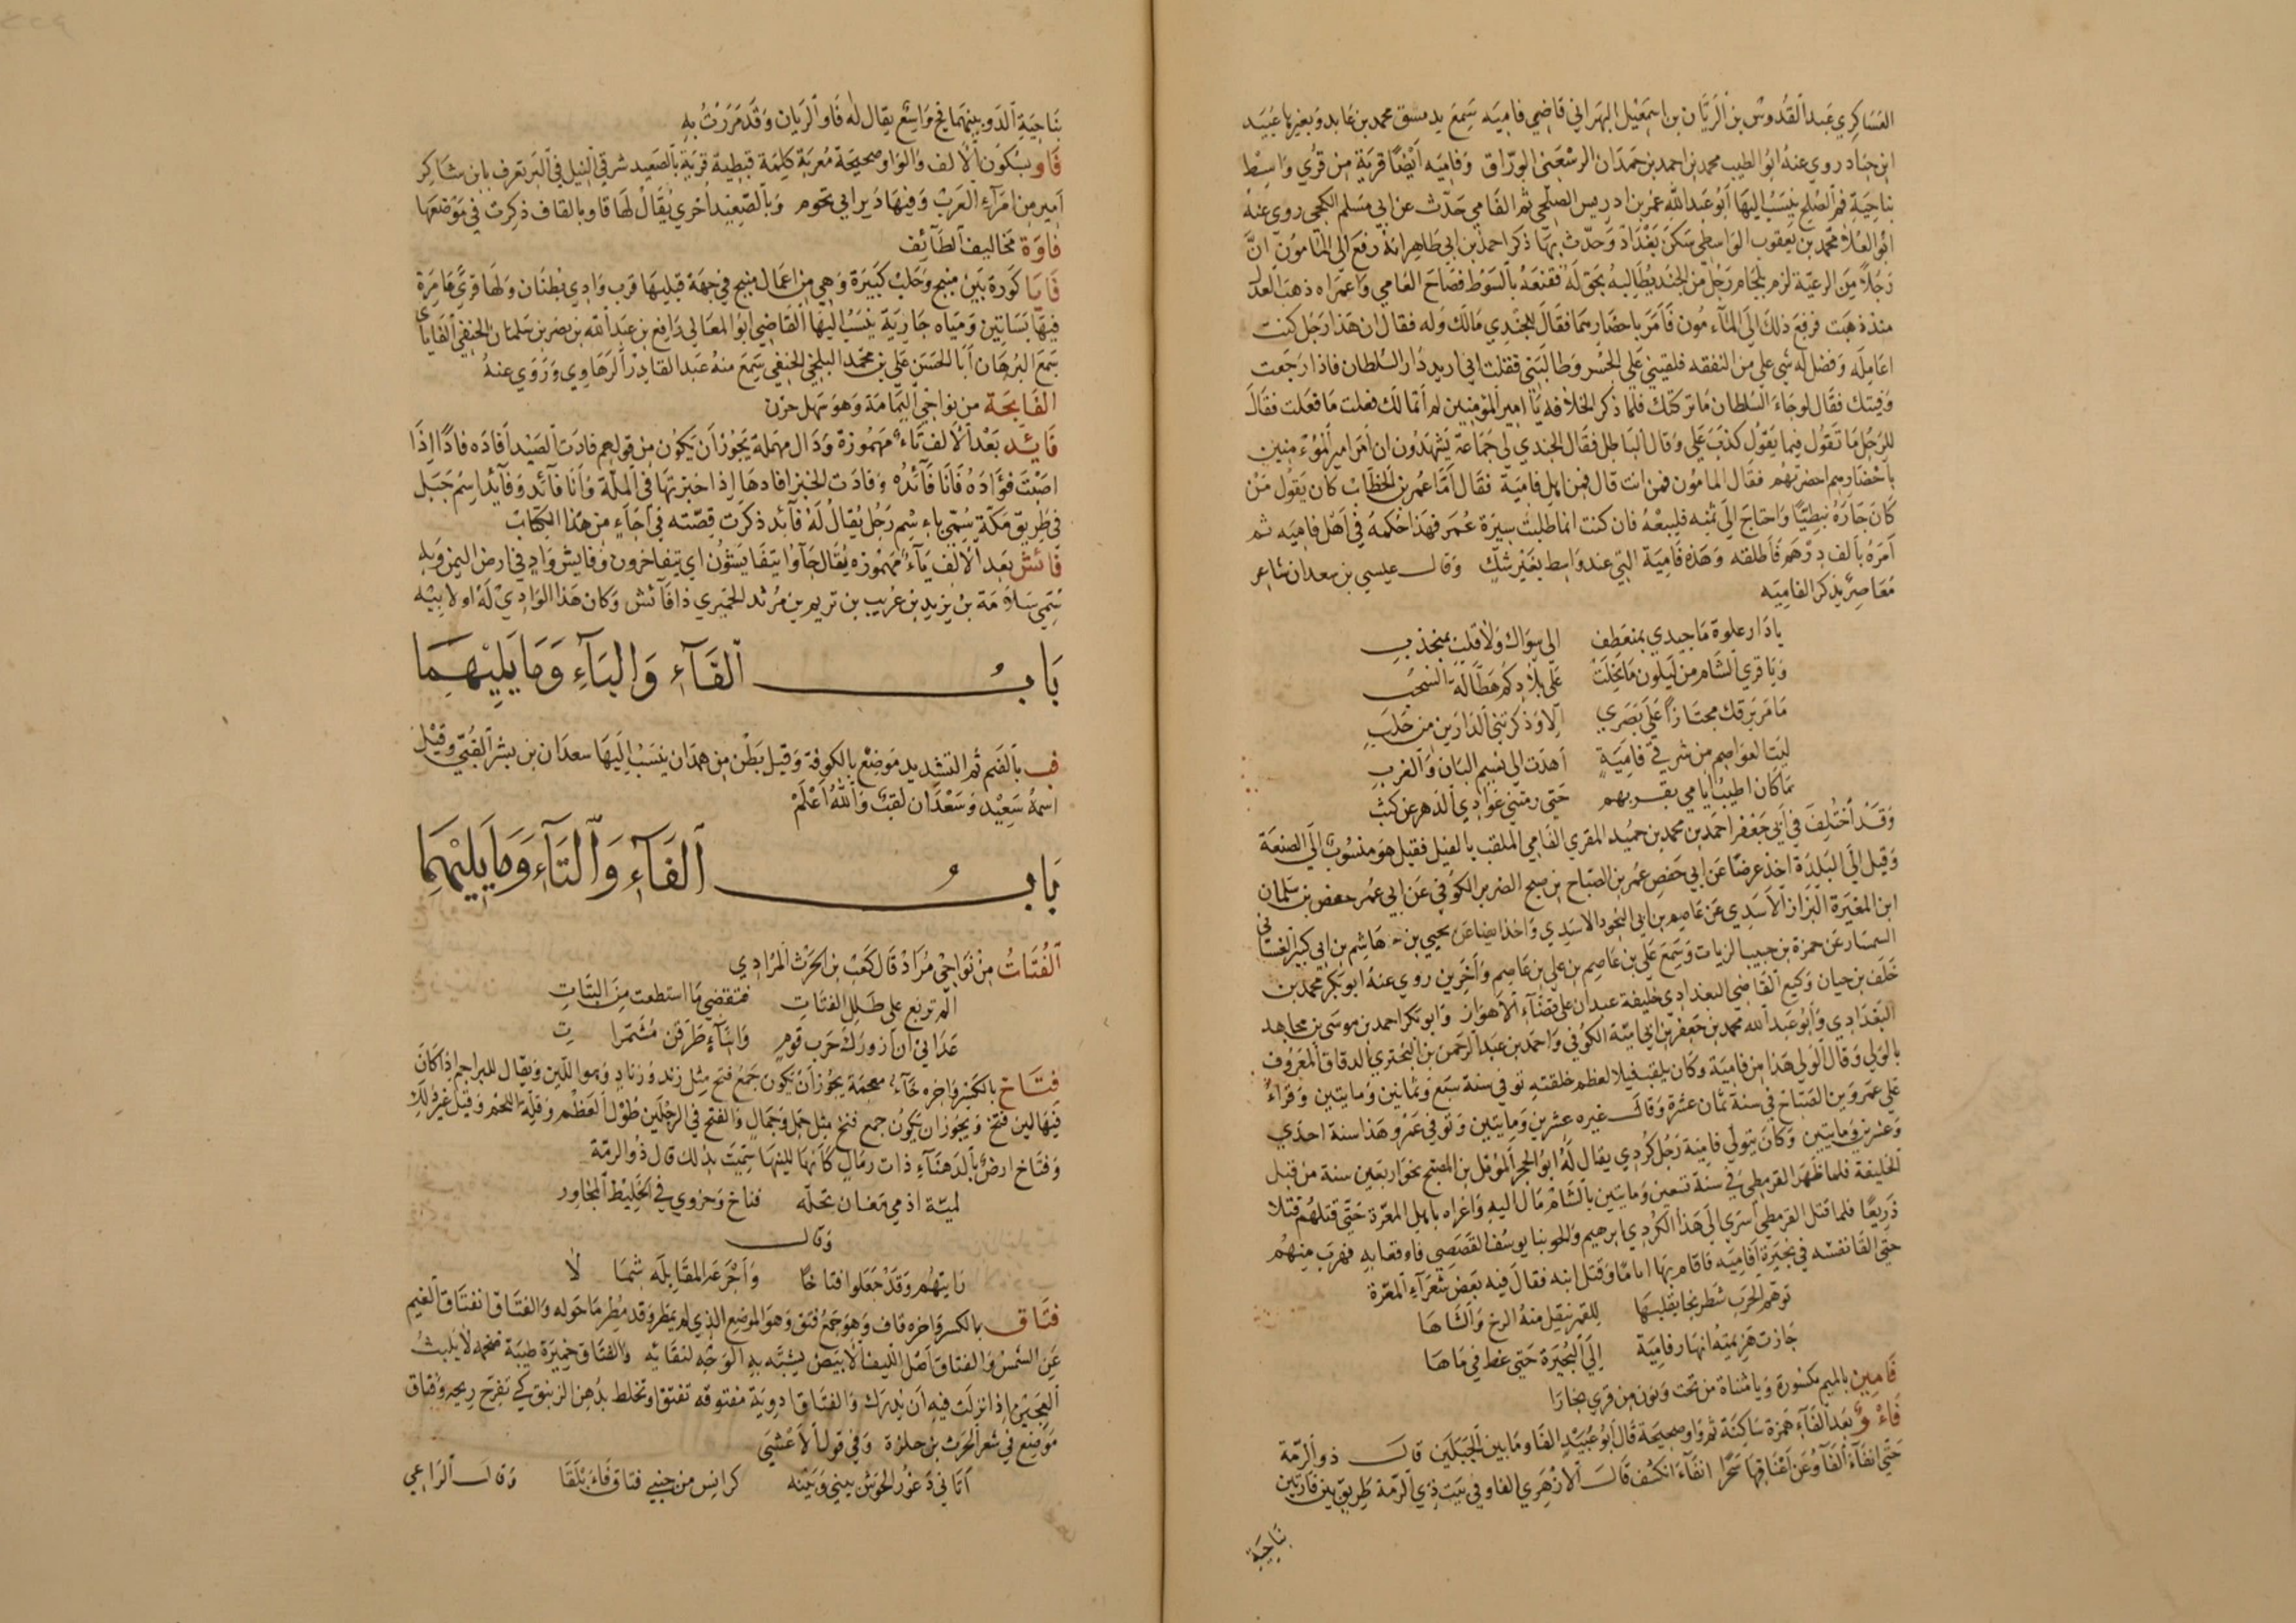 العساكري عبد القدوس بن الريان بن اسمعيل البهراني قاضي فاميه سمع بدمشق محمد بن عايد وبغيرها عبيد
ابن جناد روي عنه ابو الطيب محمد بن احمد بن حمدان الرسعني الوراق وفاميه أيضًا قرية من قري واسط
بناحية فم الصلح ينسب اليها أبو عبد الله عمر بن ادريس الصلحي ثم الفامي حدث عن ابي مسلم الكجي روي عنه
ابو العلا محمد بن يعقوب الواسطي سكن بغداد وحدث بها ذكر احمد بن ابي طاهر انه رفع الى المامون ان
رجلا من الرعية لزم بلجام رجل من الجند يطالبه بحق له فقنعه بالسوط فصاح الفامي واعمراه ذهب العدل
منذ ذهبت فرفع ذلك الى المآمون فأمر باحضارهما فقال للجندي مالك وله فقال ان هذا رجل كنت
اعامله وفضل له شي علي من النفقه فلقيني على الجسر وطالبني فقلت اني اريد دار السلطان فاذا رجعت
وفيتك فقال لو جاء السلطان ما تركتك فلما ذكر الخلافه يا امير المؤمنين لم اتمالك فعلت ما فعلت فقال
للرجل ما تقول فيما يقول كذب علي وقال الباطل فقال الجندي لي جماعة يشهدون ان امر امير المؤمنين
باحضارهم احضرتهم فقال المامون فمن انت قال فمن اهل فامية فقال أما عمر بن الخطاب كان يقول من
كان جاره نبطيًا واحتاج الى ثمنه فليبعه فان كنت انما طلبت سيرة عمر فهذا حكمه في اهل فاميه ثم
أمره بالف درهم فأطلقه وهذه فامية التي عند واسط بغير شك وقال عيسي بن سعدان شاعر
معاصر يذكر الفاميه
يا دار علوة ما جيدي بمنعطف الى سواك ولا قلب بمنجذب
ويا قري الشام من ليلون ما بخلت على بلادكم هطالة السحب
ما مر برقك مجتازًا على بصري الا وذكرتني الدارين من حلب
ليت العواصم من شرقي فامية أهدت الى نسيم البان والغرب
ما كان اطيب ايامي بقربهم حتى رمتني غوادي الدهر عن كثب
وقد أختلف في أبي جعفر احمد بن محمد بن حميد المقري الفامي الملقب بالفيل فقيل هو منسوب الى الصنعة
وقيل الى البلدة اخذ عرضًا عن ابي حفص عمر بن الصباح بن صبيح الضرير الكوفي عن ابي عمر حفص بن سلمان
ابن المغيرة البزاز الأسدي عن عاصم بن ابي النجود الاسدي واخذ ايضا عن يحيي بن هاشم بن ابي كبير الغساني
السمسار عن حمزة بن حبيب الزيات وسمع علي بن عاصم بن علي بن عاصم وآخرين روي عنه ابو بكر محمد بن
خلف بن حيان وكيع القاضي البغدادي خليفة عبدان على قضآء الأهواز وابو بكر احمد بن موسى بن مجاهد
البغدادي وابو عبد الله محمد بن جعفر بن ابي امية الكوفي واحمد بن عبد الرحمن بن البختري الدقاق المعروف
بالولي وقال الولي هذا من فامية وكان يلقب فيلا لعظم خلقته توفي سنة سبع وثمانين ومايتين وقراء
علي عمرو بن الصباح في سنة ثمان عشرة وقال غيره عشرين ومايتين وتوفي عمرو هذا سنة احدي
وعشرين ومايتين وكان يتولى فامية رجل كردي يقال له ابو الحجر المؤمل بن المصبح نحو اربعين سنة من قبل
الخليفة فلما ظهر القرمطي في سنة تسعين ومايتين بالشام مال اليه واغراه باهل المعرة حتى قتلهم قتلا
ذريعًا فلما قتل القرمطي أسري الى هذا الكردي ابرهيم وانجو بنا يوسف القصصي فاوقعا به فهرب منهم
حتى القا نفسه في بحيرة افاميه فاقام بها اياما وقتل ابنه فقال فيه بعض شعرآء المعرة
توهم الحرب شطرنجا يقلبها للقمر ينقل منه الرخ والشاها
جازت هزيمته انهار فامية الى البحيرة حتى غط في ماها
فامين بالميم مكسورة ويا مثناة من تحت ونون من قري بخارا
فاءو بعد الفآء همزة ساكنة ثم واو صحيحة قال أبو عبيد الفاو ما بين الجبلين قال ذو الرمة
حتى انفآء الفآو عن اعناقها سحرا انفآء انكشف قال الأزهري الفاو في بيت ذي الرمة طريق بين قارتين
ناحية
بناحية الدو بينهما فج واسع يقال له فاو الريان وقد مررت به
فاو بسكون الالف والواو صحيحة معربة كلمة قبطية قرية بالصعيد شرقي النيل في البر تعرف بابن شاكر
أمير من امرآء العرب وفيها دير ابي بخوم وبالصعيد أخري يقال لها قاو بالقاف ذكرت في موضعها
فاوة مخاليف الطآئف
فايا كورة بين منبج وحلب كبيرة وهي من اعمال منبج في جهة قبليها قرب وادي بطنان ولها قرى عامرة
فيها بساتين ومياه جارية ينسب اليها القاضي أبو المعالي رافع بن عبد الله بن نصر بن سلمان الحنفي الفاياي
سمع البرهان أبا الحسن علي بن محمد البلخي الحنفي سمع منه عبد القادر الرهاوي وروي عنه
الفايحة من نواحي اليمامة وهو سهل حزن
فائد بعد الالف ياء مهموزة ودال مهملة يجوز أن يكون من قولهم فادت الصيد أفاده فادًا اذا
اصبت فؤاده فأنا فآئده وفادت الخبز افادها اذا خبزتها في الملة وانا فآئد وفآئد اسم جبل
في طريق مكة سمي باسم رجل يقال له فآئد ذكرت قصته في أجاء من هذا الكتاب
فائش بعد الألف يآء مهموزه يقال جآوا يتفايشون اي يتفاخرون وفايش واد في ارض اليمن وبه
سمي سلامة بن يزيد بن غريب بن تريم بن مرثد الحميري ذا فآئش وكان هذا الوادي له او لابيه
باب الفآء والبآء وما يليهما
ف بالضم ثم التشديد موضع بالكوفة وقيل بطن من همدان ينسب اليها سعدان بن بشر القبي وقيل
اسمه سعيد وسعدان لقب والله أعلم
باب الفآء والتآء وما يليهما
الفتات من نواحي مراد قال كعب بن الحرث المرادي
ألم تربع على طلل الفتات فتقضي ما استطعت من البتات
عداني ان ازورك حرب قوم وانبآء طرقن مشمرات
فتاخ بالكسر واخره خآء معجمة يجوز أن يكون جمع فتخ مثل زند وزناد وهو اللين ويقال للبراجم اذا كان
فيها لين فتخ ويجوز ان يكون جمع فتخ مثل جمل وجمال والفتخ في الرجلين طول العظم وقلة اللحم وقيل غير ذلك
وفتاخ ارض بالدهنآء ذات رمال كأنها للينها سميت بذلك قال ذو الرمة
لمية اذ مي معان تحله فتاخ وحزوي في الخليط المجاور
وقال
رايتهم وقد جعلوا فتاخا وأجرعه المقابله شمالا
فتاق بالكسر واخره قاف وهو جمع فتق وهو الموضع الذي لم يمطر وقد مطر ما حوله والفتاق انفتاق الغيم
عن الشمس والفتاق اصل الليف الأبيض يشبه به الوجه لنقائه والفتاق خميرة طيبة ضخمه لا يلبث
العجين اذا نزلت فيه أن يدرك والفتاق ادوية مفتوقه تفتق وتخلط بدهن الزنبق كي تفوح ريحه وفتاق
موضع في شعر الحرث بن حلزة وفي قول الأعشي
أتاني وغور الحوش بيني وبينه كرانس من جنبي فتاق فأبلقا وقال الراعي